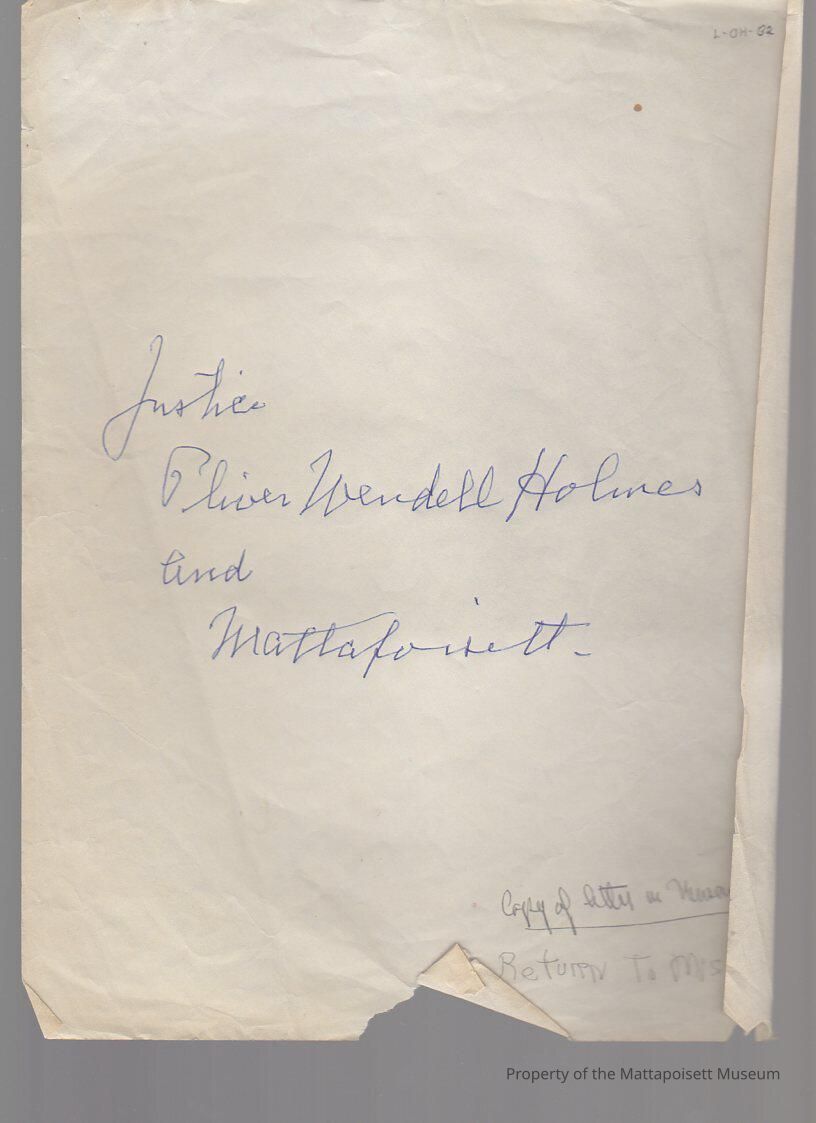 L-OH-82
Justice
Oliver Wendell Holmes
and
Mattapoisett-
Copy of letter in
Return To Mrs
Property of the Mattapoisett Museum